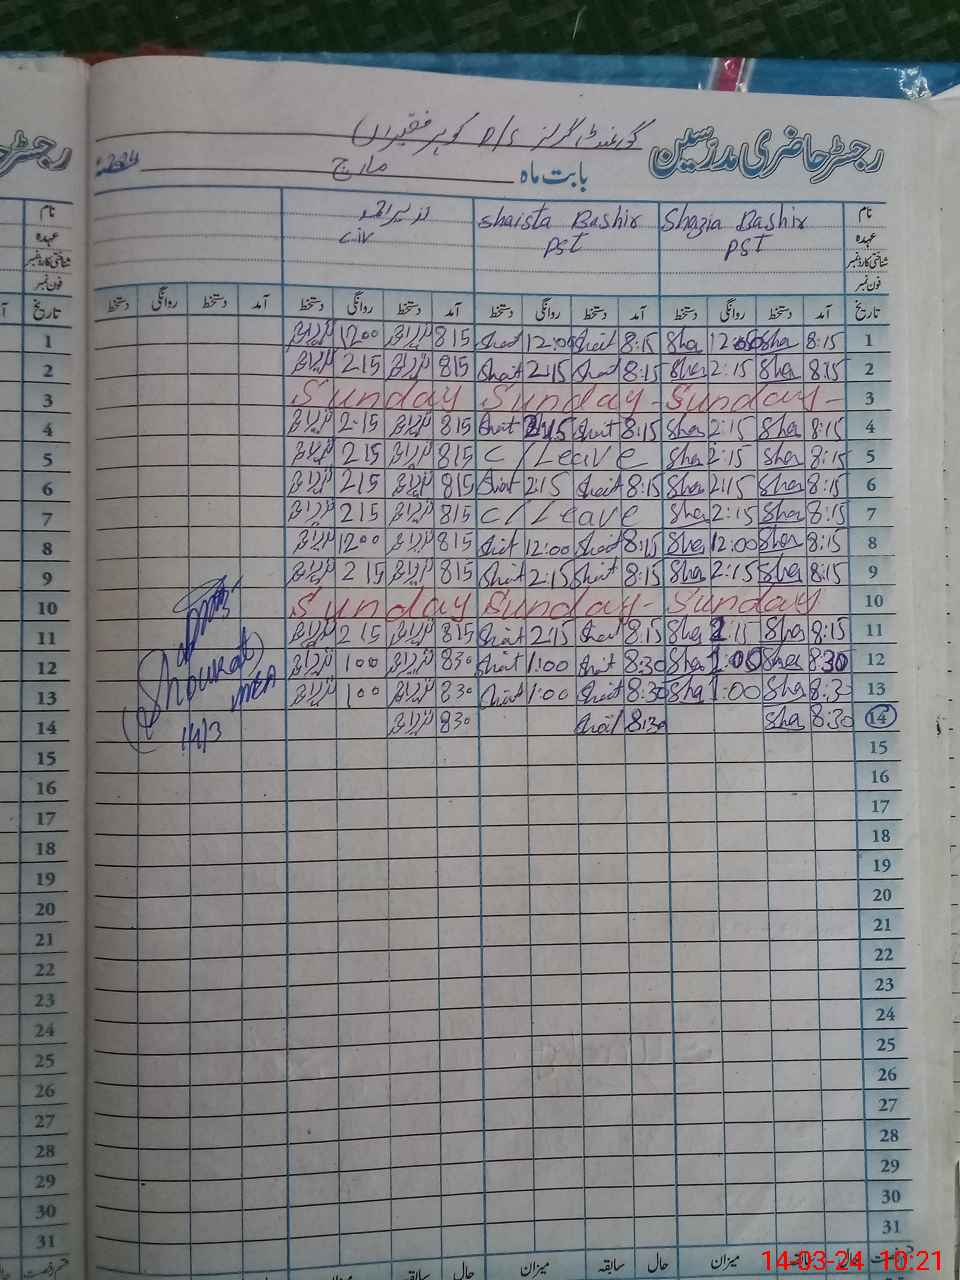 رجسٹر حاضری مدرسین گورنمنٹ گرلز P/S گوہر فقیراں
بابت ماہ مارچ
نام Shazia Bashir Shaista Bashir
عہدہ PST PST C-IV
شناختی کارڈ نمبر
فون نمبر
تاریخ آمد دستخط روانگی دستخط آمد دستخط روانگی دستخط آمد دستخط روانگی دستخط آمد دستخط روانگی دستخط
1 8:15 Sha 12:00 Sha 8:15 Shait 12:00 Shait 815 1200
2 8:15 Sha 2:15 Sha 8:15 Shait 2:15 Shait 815 215
3 Sunday Sunday - Sunday -
4 8:15 Sha 2:15 Sha 8:15 Shait 2:15 Shait 815 2-15
5 8:15 Sha 2:15 Sha C/Leave 815 215
6 8:15 Sha 2:15 Sha 8:15 Shait 2:15 Shait 815 215
7 8:15 Sha 2:15 Sha C/Leave 815 215
8 8:15 Sha 12:00 Sha 8:15 Shait 12:00 Shait 815 1200
9 8:15 Sha 2:15 Sha 8:15 Shait 2:15 Shait 815 215
10 Sunday Sunday - Sunday
11 8:15 Sha 2:15 Sha 8:15 Shait 2:15 Shait 815 215
12 8:30 Sha 1:00 Sha 8:30 Shait 1:00 Shait 830 100
13 8:30 Sha 1:00 Sha 8:30 Shait 1:00 Shait 830 100
14 8:30 Sha 8:30 Shait 830
Shoukat
MEA
14/3
15
16
17
18
19
20
21
22
23
24
25
26
27
28
29
30
31
حال سابقہ میزان حال سابقہ میزان حال سابقہ میزان
14-03-24 10:21